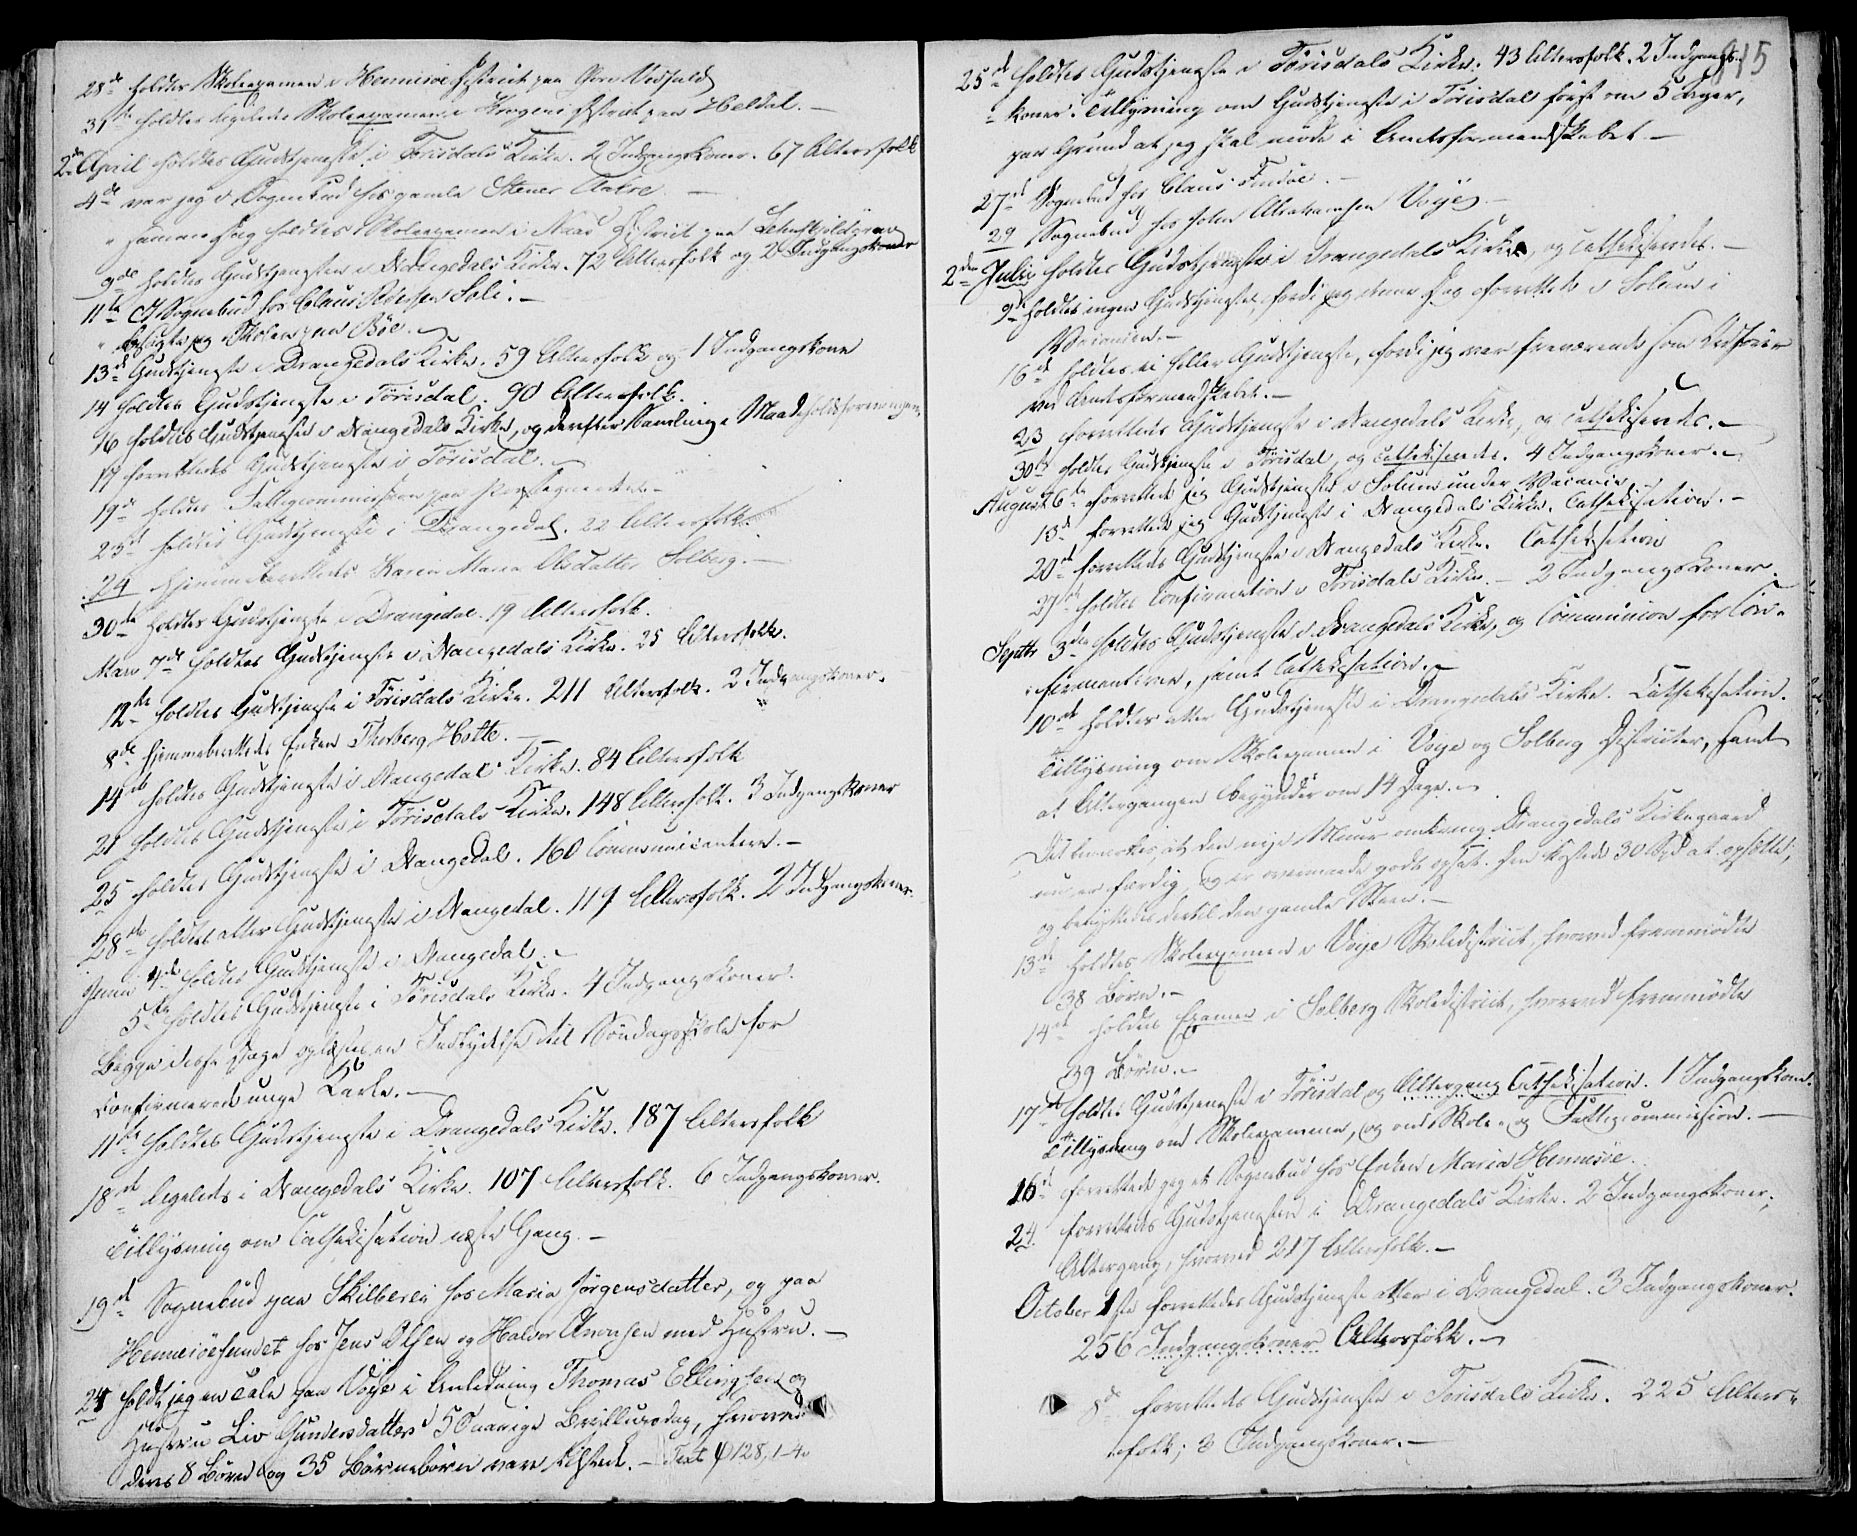 28de holdtes Skoleexamen i Henneseie District paa
31te holdtes ligeledes Skoleexamen i Krogens District paa Heldal. —
2den April holdtes Gudstjeneste i Törisdals Kirke. 2 Indgangskoner. 67 Altersfolk
4de var jeg i Sognebud hos gamle Stener Aakre. —
" samme Dag holdtes Skoleexamen i Naas District paa
9de holdtes Gudstjeneste i Drangedals Kirke. 72 Altersfolk og 2 Indgangskoner
11te I Sognebud hos Claus Pedersen Soli. —
" besøgte jeg Skolen paa Böe. —
13de Gudstjeneste i Drangedals Kirke. 59 Altersfolk og 1 Indgangskone
14 holdtes Gudstjeneste i Törisdal. 90 Altersfolk.
16 holdtes Gudstjeneste i Drangedals Kirke, og derefter Samling i Maadeholdsforeningen.
17 forrettedes Gudstjeneste i Törisdal. —
19de holdtes Fattigcommission paa Præstegaarden. —
23de holdtes Gudstjeneste i Drangedal. 22 Altersfolk.
24 hjemmeberettedes Karen Maria Olsdatter Solberg. —
30te holdtes Gudstjeneste i Drangedal. 19 Altersfolk.
Mai 7de holdtes Gudstjeneste i Drangedals Kirke. 25 Altersfolk.
12te holdtes Gudstjeneste i Törisdals Kirke. 211 Altersfolk. 2 Indgangskoner.
8de hjemmeberettedes Enken Thorberg Hotte. —
14de holdtes Gudstjeneste i Drangedals Kirke. 84 Altersfolk
21 holdtes Gudstjeneste i Törisdals Kirke. 148 Altersfolk. 3 Indgangskoner
25 holdtes Gudstjeneste i Drangedal. 160 Communicantere. —
28de holdtes atter Gudstjeneste i Drangedal. 119 Altersfolk. 2 Indgangskoner.
Juni 4de holdtes Gudstjeneste i Drangedal. —
5te holdtes Gudstjeneste i Törisdals Kirke. 4 Indgangskoner.
Begge disse Dage oplæstes en Indbydelse til Söndagsskole for
confirmerede unge Karle. —
11te holdtes Gudstjeneste i Drangedals Kirke. 187 Altersfolk
18de ligeledes i Drangedals Kirke. 107 Altersfolk. 6 Indgangskoner.
Tillysning om Cathekisation næste Gang. —
19de Sognebud paa Skilberei hos Maria Jörgensdatter, og paa
Henneseiesundet hos Jens Olsen og Halvor Aronsen med Hustru. —
24 holdt jeg en Tale paa Voje i Anledning Thomas Ellingsen og
Hustru Liv Gundersdatters 50aarige Bryllupsdag, hvorved
deres 8 Börn og 35 Börnebörn vare tilstede. — Text ψ 128, 1-4.
215
25de holdtes Gudstjeneste i Törisdals Kirke. 43 Altersfolk. 2 Indgangs-
koner. Tillysning om Gudstjeneste i Törisdal först om 5 Uger,
paa Grund at jeg skal möde i Amtsformandskabet. —
27de Sognebud hos Claus Findöe. —
29 Sognebud hos John Abrahamsen Voje. —
2den Julii holdtes Gudstjeneste i Drangedals Kirke, og cathekiseredes. —
9de holdtes ingen Gudstjeneste, fordi jeg denne Dag forrettede i Solum i
Vacancen. —
16de holdtes ei heller Gudstjeneste, fordi jeg var fraværende som
ved Amtsformandskabet. —
23 forrettedes Gudstjeneste i Drangedals Kirke, og cathekiseredes. —
30te holdtes Gudstjeneste i Törisdal, og cathekiseredes. 4 Indgangskoner. —
August 6te forrettede jeg Gudstjeneste i Solum under Vacance. —
13de forrettede jeg Gudstjeneste i Drangedals Kirke. Cathekisation. —
20de forrettedes Gudstjeneste i Drangedals Kirke. Cathekisation
27de holdtes Confirmation i Törisdals Kirke. — 2 Indgangskoner.
Septbr 3die holdtes Gudstjeneste i Drangedals Kirke, og Communion for Con-
firmanterne, samt Cathekisation. —
10de holdtes atter Gudstjeneste i Drangedals Kirke. Cathekisation.
Tillysning om Skoleexamen i Voje og Solberg Districter, samt
at Altergangen begynder om 14 Dage. —
Det bemærkes, at den nye Muur omkring Drangedals Kirkegaard
nu er færdig, og er overmaade godt opsat. Den kostede 30 Spd at opsætte,
og benyttedes dertil den gamle Steen. —
13de holdtes Skoleexamen i Voje Skoledistrict, hvorved fremmödte
38 Börn. —
14de holdtes Examen i Solberg Skoledistrict, hvorved fremmödte
39 Börn. —
17de holdtes Gudstjeneste i Törisdal og Altergang Cathekisation. 1 Indgangskone.
Tillysning om Skoleexamen, og om Skole- og Fattigcommission. —
16de forrettede jeg et Sognebud hos Enken Maria Henneseie.
24 forrettedes Gudstjeneste i Drangedals Kirke. 2 Indgangskoner,
Altergang, hvorved 217 Altersfolk. —
October 1ste forrettedes Gudstjeneste atter i Drangedal. 3 Indgangskoner.
256 Indgangskoner Altersfolk. —
8de forrettedes Gudstjeneste i Törisdals Kirke. 225 Alters-
folk; 3 Indgangskoner. —